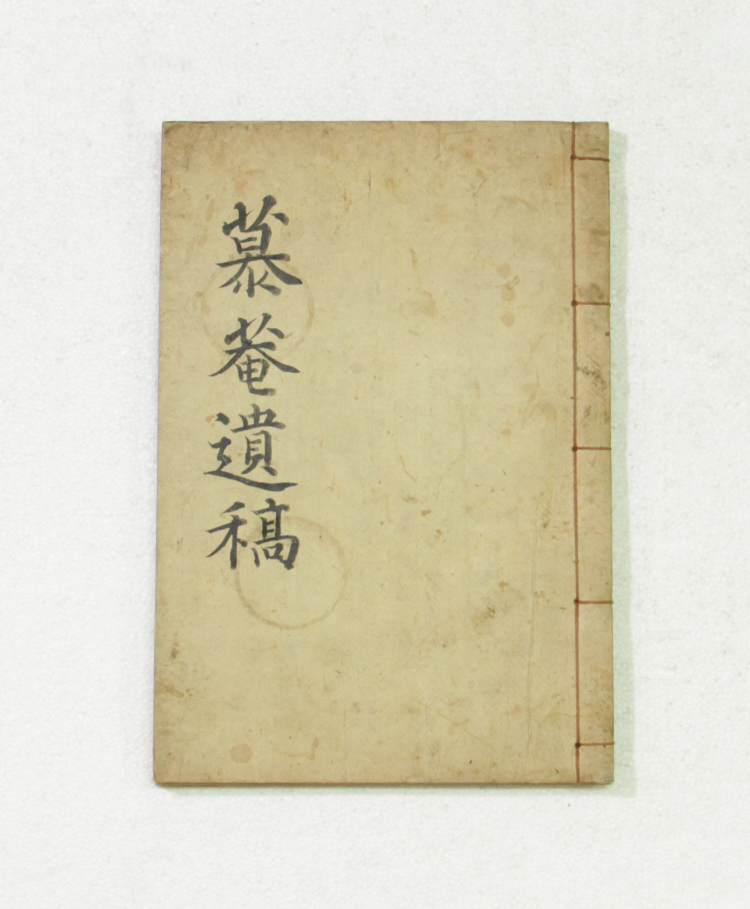 慕菴遺稿